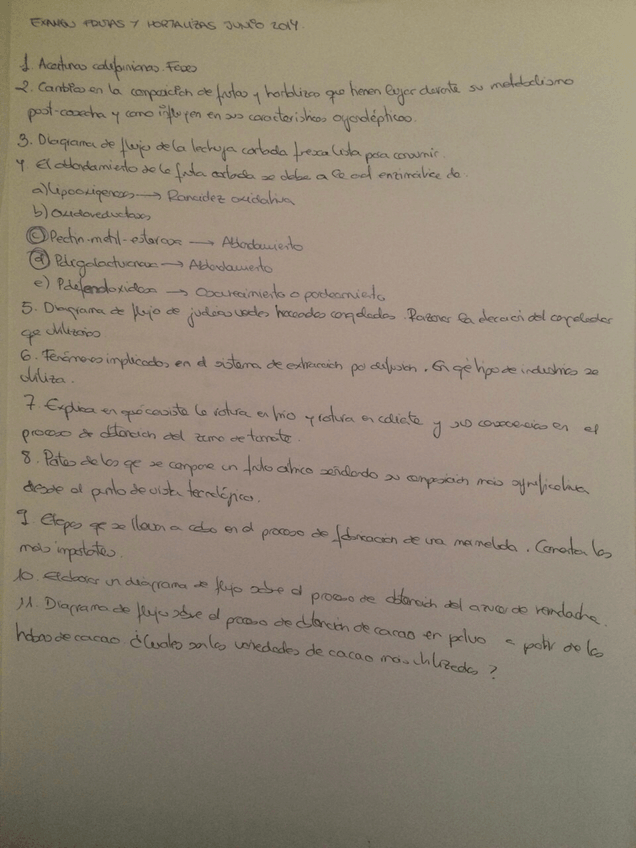 EXAMEN FRUTAS Y HORTALIZAS JUNIO 2014.
1. Aceitunas californianas. Fases
2. Cambios en la composición de frutas y hortalizas que tienen lugar durante su metabolismo
post-cosecha y como influyen en sus características organolépticas.
3. Diagrama de flujo de la lechuga cortada fresca lista para consumir.
4. El ablandamiento de la fruta cortada se debe a la act enzimática de.
a) Lipooxigenasas → Rancidez oxidativa
b) Oxidoreductasas
c) Pectin-metil-esterasa → Ablandamiento
d) Poligalacturonasa → Ablandamiento
e) Polifenoloxidasa → Oscurecimiento o pardeamiento
5. Diagrama de flujo de judías verdes troceadas congeladas. Razonar la elección del congelador
que utilizarías
6. Fenómenos implicados en el sistema de extracción por difusión. En qué tipo de industrias se
utiliza.
7. Explica en qué consiste la rotura en frío y rotura en caliente y sus consecuencias en el
proceso de obtención del zumo de tomate.
8. Partes de las que se compone un fruto cítrico señalando su composición más significativa
desde el punto de vista tecnológico.
9. Etapas que se llevan a cabo en el proceso de fabricación de una mermelada. Comenta las
más importantes.
10. Elaborar un diagrama de flujo sobre el proceso de obtención del azúcar de remolacha.
11. Diagrama de flujo sobre el proceso de obtención de cacao en polvo a partir de las
habas de cacao ¿Cuales son las variedades de cacao más utilizadas?